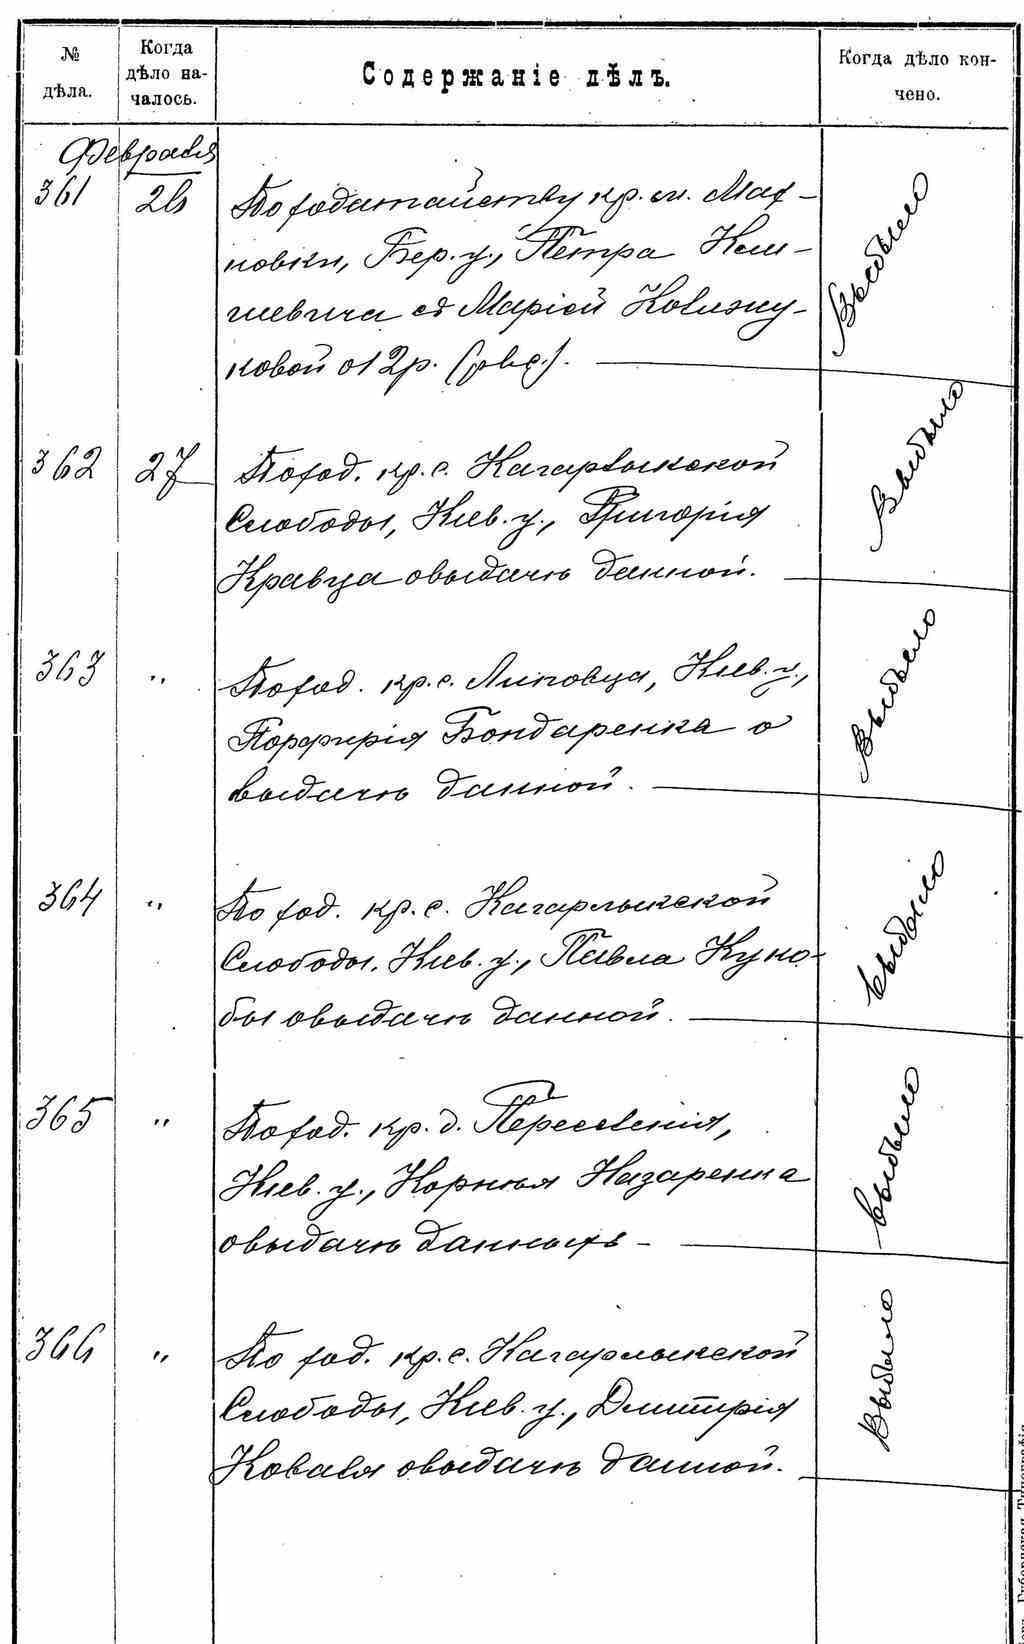 № дѣла.
Когда дѣло на-
чалось.
Содержаніе дѣлъ.
Когда дѣло кон-
чено.
Февраля
361 26 По ходатайству кр. м. Мах-
новки, Бер. у., Петра
съ Маріей
ковой о 12 р.
Выбыло
362 27 По ход. кр. с. Кагарлыкской
Слободы, Кіев. у., Григорія
Кравца о выдачѣ данной.
Выбыло
363 " По ход. кр. с. Липовца, Кіев. у.,
Порфирія Бондаренка о
выдачѣ данной.
Выбыло
364 " По ход. кр. с. Кагарлыкской
Слободы, Кіев. у., Павла Куно-
бы о выдачѣ данной.
выбыло
365 " По ход. кр. д. Переселенія,
Кіев. у., Корнія Назаренка
о выдачѣ данныхъ
выбыло
366 " По ход. кр. с. Кагарлыкской
Слободы, Кіев. у., Дмитрія
Коваля о выдачѣ данной.
Выбыло
Губернская Типографія